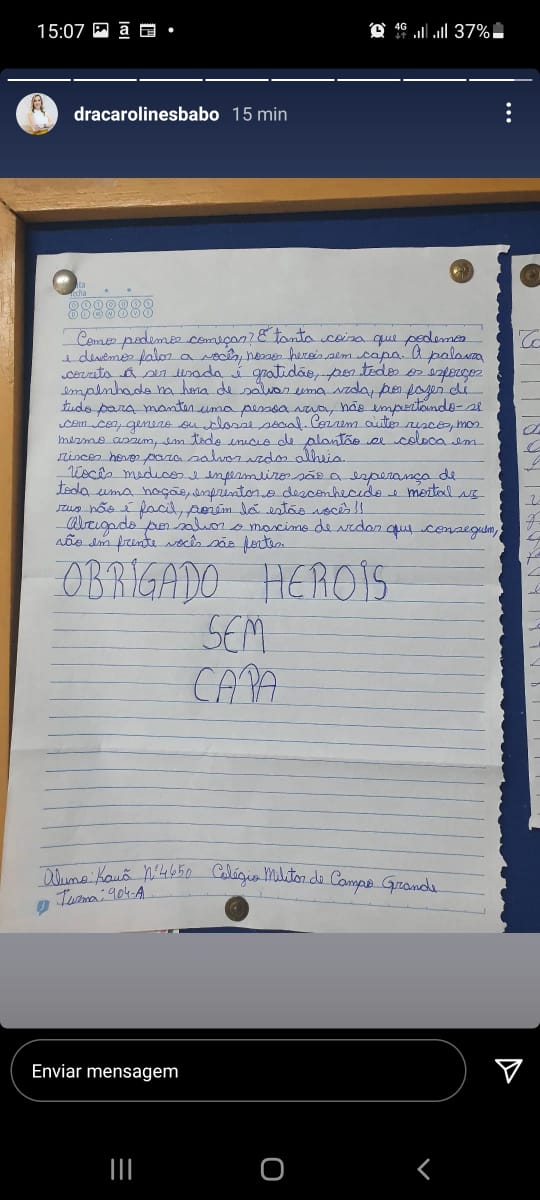 15:07
4G
37%
dracarolinesbabo 15 min
Como podemos começar? É tanta coisa que podemos
e devemos falar a vocês, nosso herois sem capa. A palavra
correta a ser usada é gratidão, por todos os esforços
empenhado na hora de salvar uma vida, por fazer de
tudo para manter uma pessoa viva, não importando-se
com cor, genero ou classe social. Correm autos riscos, mas
mesmo assim, em todo inicio de plantão se coloca em
riscos novo para salvar vidas alheia.
Vocês medicos e enfermeiros são a esperança de
toda uma nação, enfrentar o desconhecido e mortal vi
rus não é facil, porém lá estão vocês!!
Obrigado por salvar o maximo de vidas que conseguem,
vão em frente vocês são fortes.
OBRIGADO HEROIS
SEM
CAPA
Aluno: Kauã Nº4650 Colégio Militar de Campo Grande
Turma: 904-A
Enviar mensagem